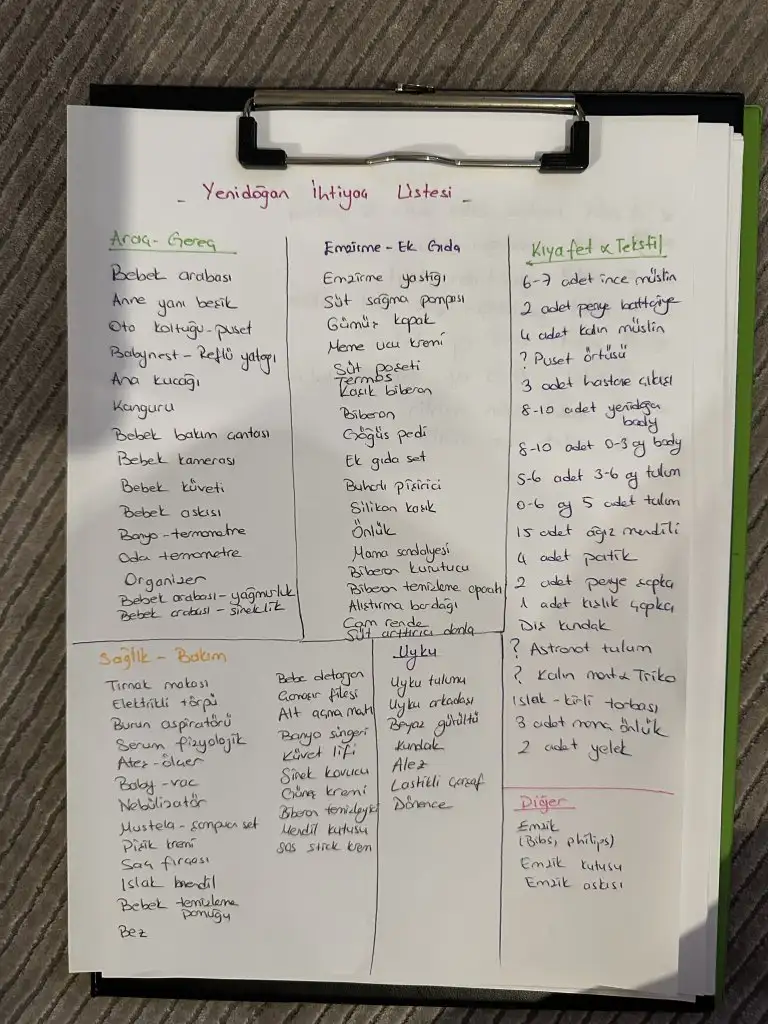 - Yenidoğan İhtiyaç Listesi -
Araç - Gereç
Bebek arabası
Anne yanı beşik
Oto koltuğu - puset
Babynest - Reflü yatağı
Ana kucağı
Kanguru
Bebek bakım çantası
Bebek kamerası
Bebek küveti
Bebek askısı
Banyo - termometre
Oda termometre
Organizer
Bebek arabası - yağmurluk
Bebek arabası - sineklik
Emzirme - Ek Gıda
Emzirme yastığı
Süt sağma pompası
Gümüş kapak
Meme ucu kremi
Süt poşeti
Termos
Kaşık biberon
Biberon
Göğüs pedi
Ek gıda set
Buharlı pişirici
Silikon kaşık
Önlük
Mama sandalyesi
Biberon kurutucu
Biberon temizleme aparatı
Alıştırma bardağı
Cam rende
Süt arttırıcı
Kıyafet & Tekstil
6-7 adet ince müslin
2 adet penye battaniye
4 adet kalın müslin
? Puset örtüsü
3 adet hastane çıkışı
8-10 adet yenidoğan
body
8-10 adet 0-3 ay body
5-6 adet 3-6 ay tulum
0-6 ay 5 adet tulum
15 adet ağız mendili
4 adet patik
2 adet penye şapka
1 adet kışlık şapka
Dış kundak
? Astronot tulum
? Kalın mont & Triko
Islak - kirli torbası
3 adet mama önlük
2 adet yelek
Sağlık - Bakım
Tırnak makası
Elektrikli törpü
Burun aspiratörü
Serum fizyolojik
Ateş - ölçer
Baby - vac
Nebülizatör
Mustela - şampuan set
Pişik kremi
Saç fırçası
Islak mendil
Bebek temizleme
pamuğu
Bez
Bebe deterjan
Çamaşır filesi
Alt açma matı
Banyo süngeri
Küvet lifi
Sinek kovucu
Güneş kremi
Biberon temizleyici
Mendil kutusu
SOS stick krem
Uyku
Uyku tulumu
Uyku arkadaşı
Beyaz gürültü
Kundak
Alez
Lastikli çarşaf
Dönence
Diğer
Emzik
(Bibs, philips)
Emzik kutusu
Emzik askısı